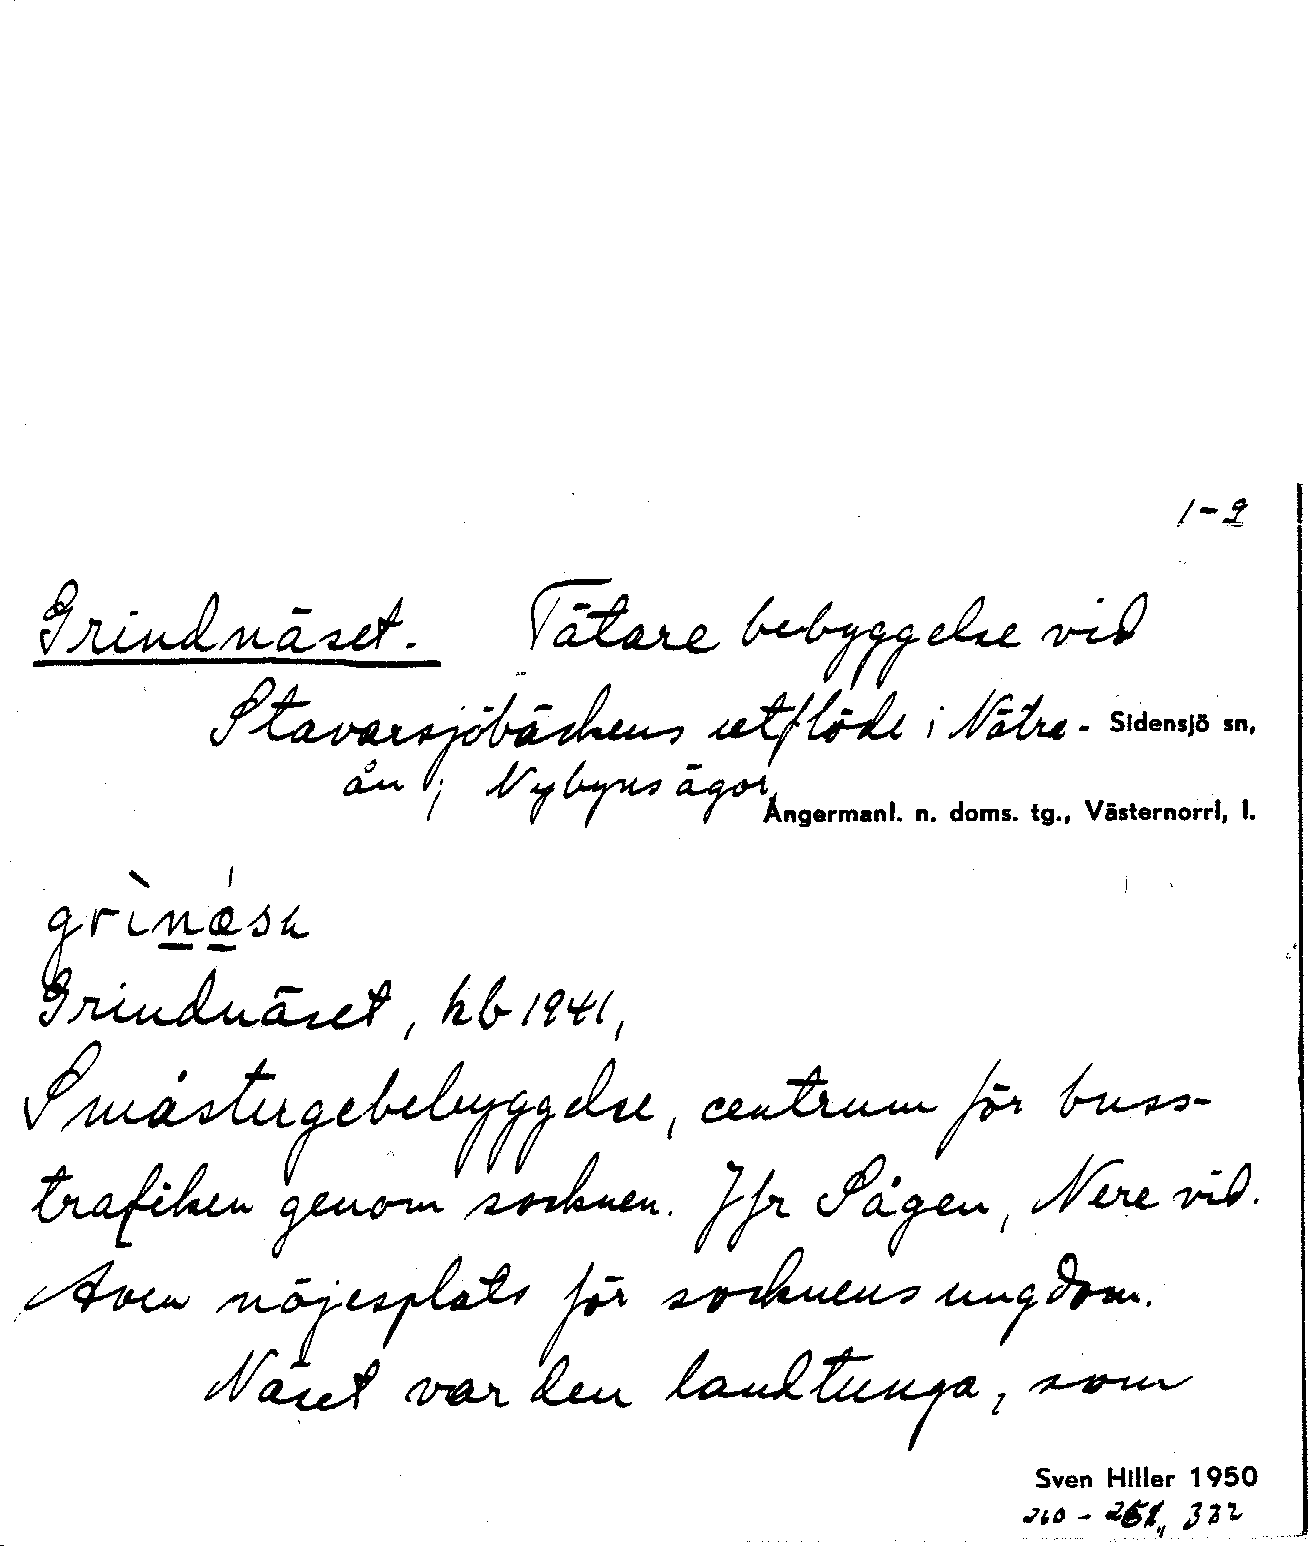 1-2
Grindnäset. Tätare bebyggelse vid
Stavarsjöbäckens utflöde i Nätra- Sidensjö sn,
ån i Nybyns ägor,
Ångermanl. n. doms. tg., Västernorrl, l.
grìnǽsn
Grindnäset, kb 1941,
Småstugebebyggelse, centrum för buss-
trafiken genom socknen. Jfr Sågen, Nere vid.
Även nöjesplats för socknens ungdom.
Näset var den landtunga, som
Sven Hiller 1950
260 - 251, 332